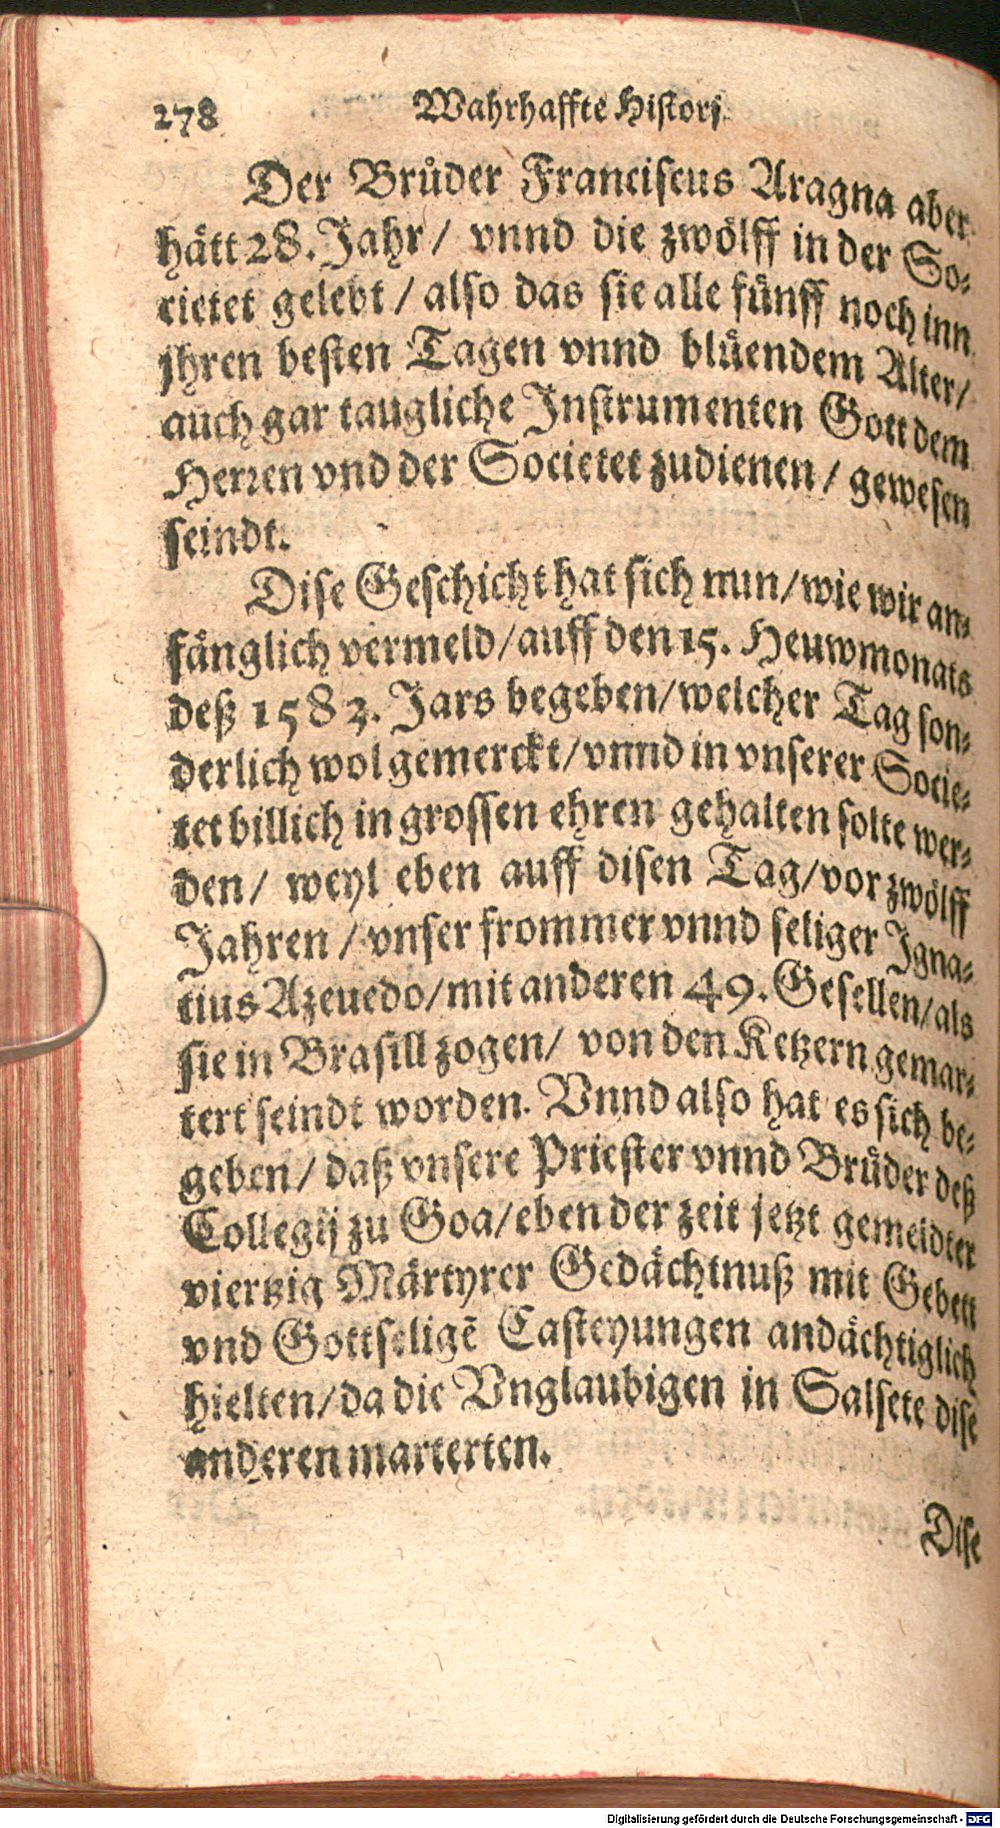 278 Wahrhaffte Histori
Der Brůder Franciscus Aragna aber
hått 28. Jahr / vnnd die zwölff in der So-
rietet gelebt / also das sie alle fünff noch inn
jhren besten Tagen vnnd blüendem Alter /
auch gar taugliche Instrumenten Gott dem
Herren vnd der Societet zudienen / gewesen
seindt.
Dise Geschicht hat sich nun / wie wir an-
fänglich vermeld / auff den 15. Heuwmonats
deß 1583. Jars begeben / welcher Tag son-
derlich wol gemerckt / vnnd in vnserer Socie-
tet billich in grossen ehren gehalten solte wer-
den / weyl eben auff disen Tag / vor zwölff
Jahren / vnser frommer vnnd seliger Igna-
tius Azeuedo / mit anderen 49. Gesellen / als
sie in Brasill zogen / von den Ketzern gemar-
tert seindt worden. Vnnd also hat es sich be-
geben / daß vnsere Priester vnnd Brůder deß
Collegij zu Goa / eben der zeit jetzt gemeldter
viertzig Märtyrer Gedächtnuß mit Gebett
vnd Gottseligē Casteyungen andächtiglich
hielten / da die Vnglaubigen in Salsete dise
anderen marterten.
Dise
Digitalisierung gefördert durch die Deutsche Forschungsgemeinschaft - DFG